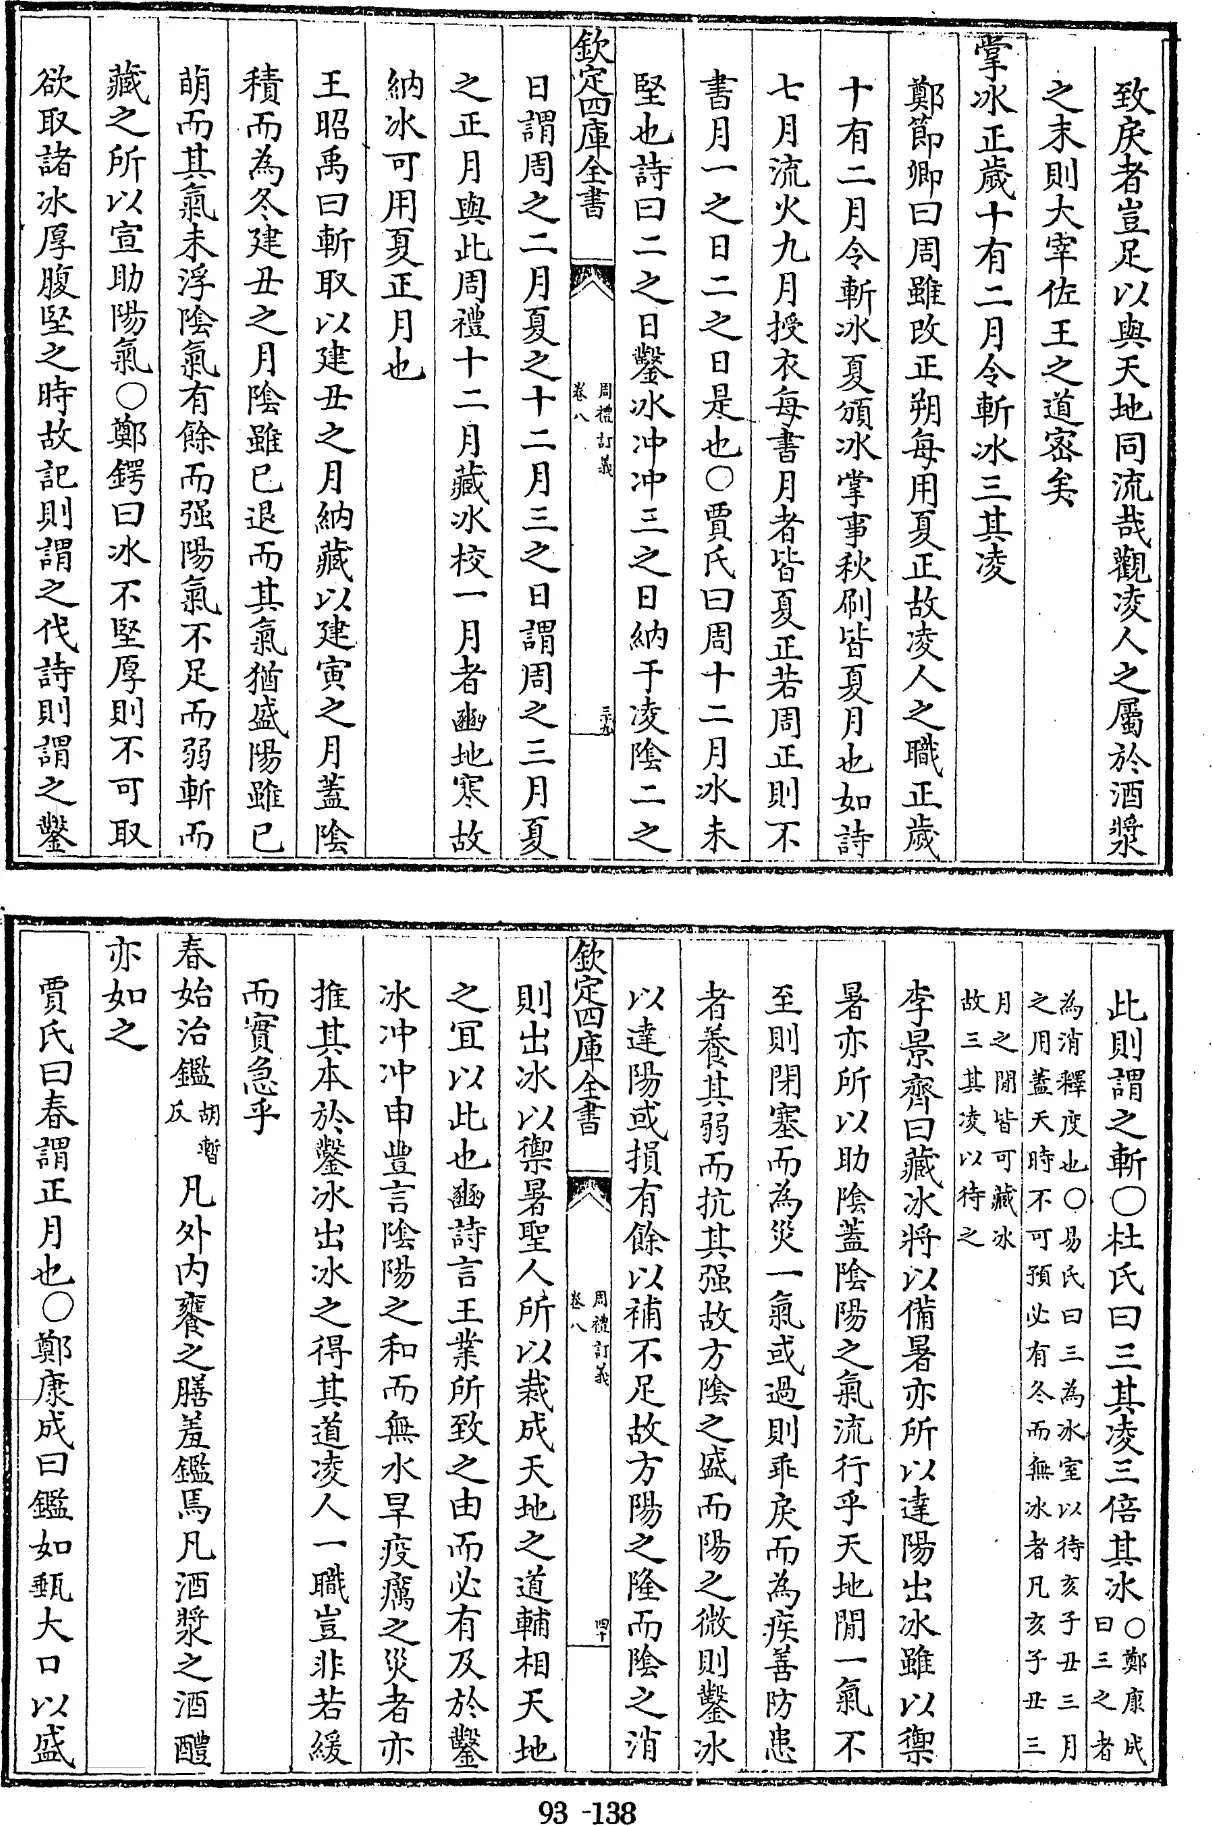 致戾者豈足以與天地同流哉觀凌人之屬於酒漿
之末則大宰佐王之道密矣
掌冰正歲十有二月令斬冰三其凌
鄭節卿曰周雖改正朔每用夏正故凌人之職正歲
十有二月令斬冰夏頒冰掌事秋刷皆夏月也如詩
七月流火九月授衣每書月者皆夏正若周正則不
書月一之日二之日是也○賈氏曰周十二月冰未
堅也詩曰二之日鑿冰冲冲三之日納于凌陰二之
欽定四庫全書
周禮訂義
卷八
三十九
日謂周之二月夏之十二月三之日謂周之三月夏
之正月與此周禮十二月藏冰校一月者豳地寒故
納冰可用夏正月也
王昭禹曰斬取以建丑之月納藏以建寅之月蓋陰
積而為冬建丑之月陰雖已退而其氣猶盛陽雖已
萌而其氣未浮陰氣有餘而强陽氣不足而弱斬而
藏之所以宣助陽氣○鄭鍔曰冰不堅厚則不可取
欲取諸冰厚腹堅之時故記則謂之伐詩則謂之鑿
此則謂之斬○杜氏曰三其凌三倍其冰○鄭康成
曰三之者
為消釋度也○易氏曰三為冰室以待亥子丑三月
之用蓋天時不可預必有冬而無冰者凡亥子丑三
月之間皆可藏冰
故三其凌以待之
李景齊曰藏冰將以備暑亦所以達陽出冰雖以禦
暑亦所以助陰蓋陰陽之氣流行乎天地間一氣不
至則閉塞而為災一氣或過則乖戾而為疾善防患
者養其弱而抗其强故方陰之盛而陽之微則鑿冰
以達陽或損有餘以補不足故方陽之隆而陰之消
欽定四庫全書
周禮訂義
卷八
四十
則出冰以禦暑聖人所以裁成天地之道輔相天地
之宜以此也豳詩言王業所致之由而必有及於鑿
冰冲冲申豐言陰陽之和而無水旱疫癘之災者亦
推其本於鑿冰出冰之得其道凌人一職豈非若緩
而實急乎
春始治鑑胡暫
反凡外内饔之膳羞鑑焉凡酒漿之酒醴
亦如之
賈氏曰春謂正月也○鄭康成曰鑑如甀大口以盛
93-138